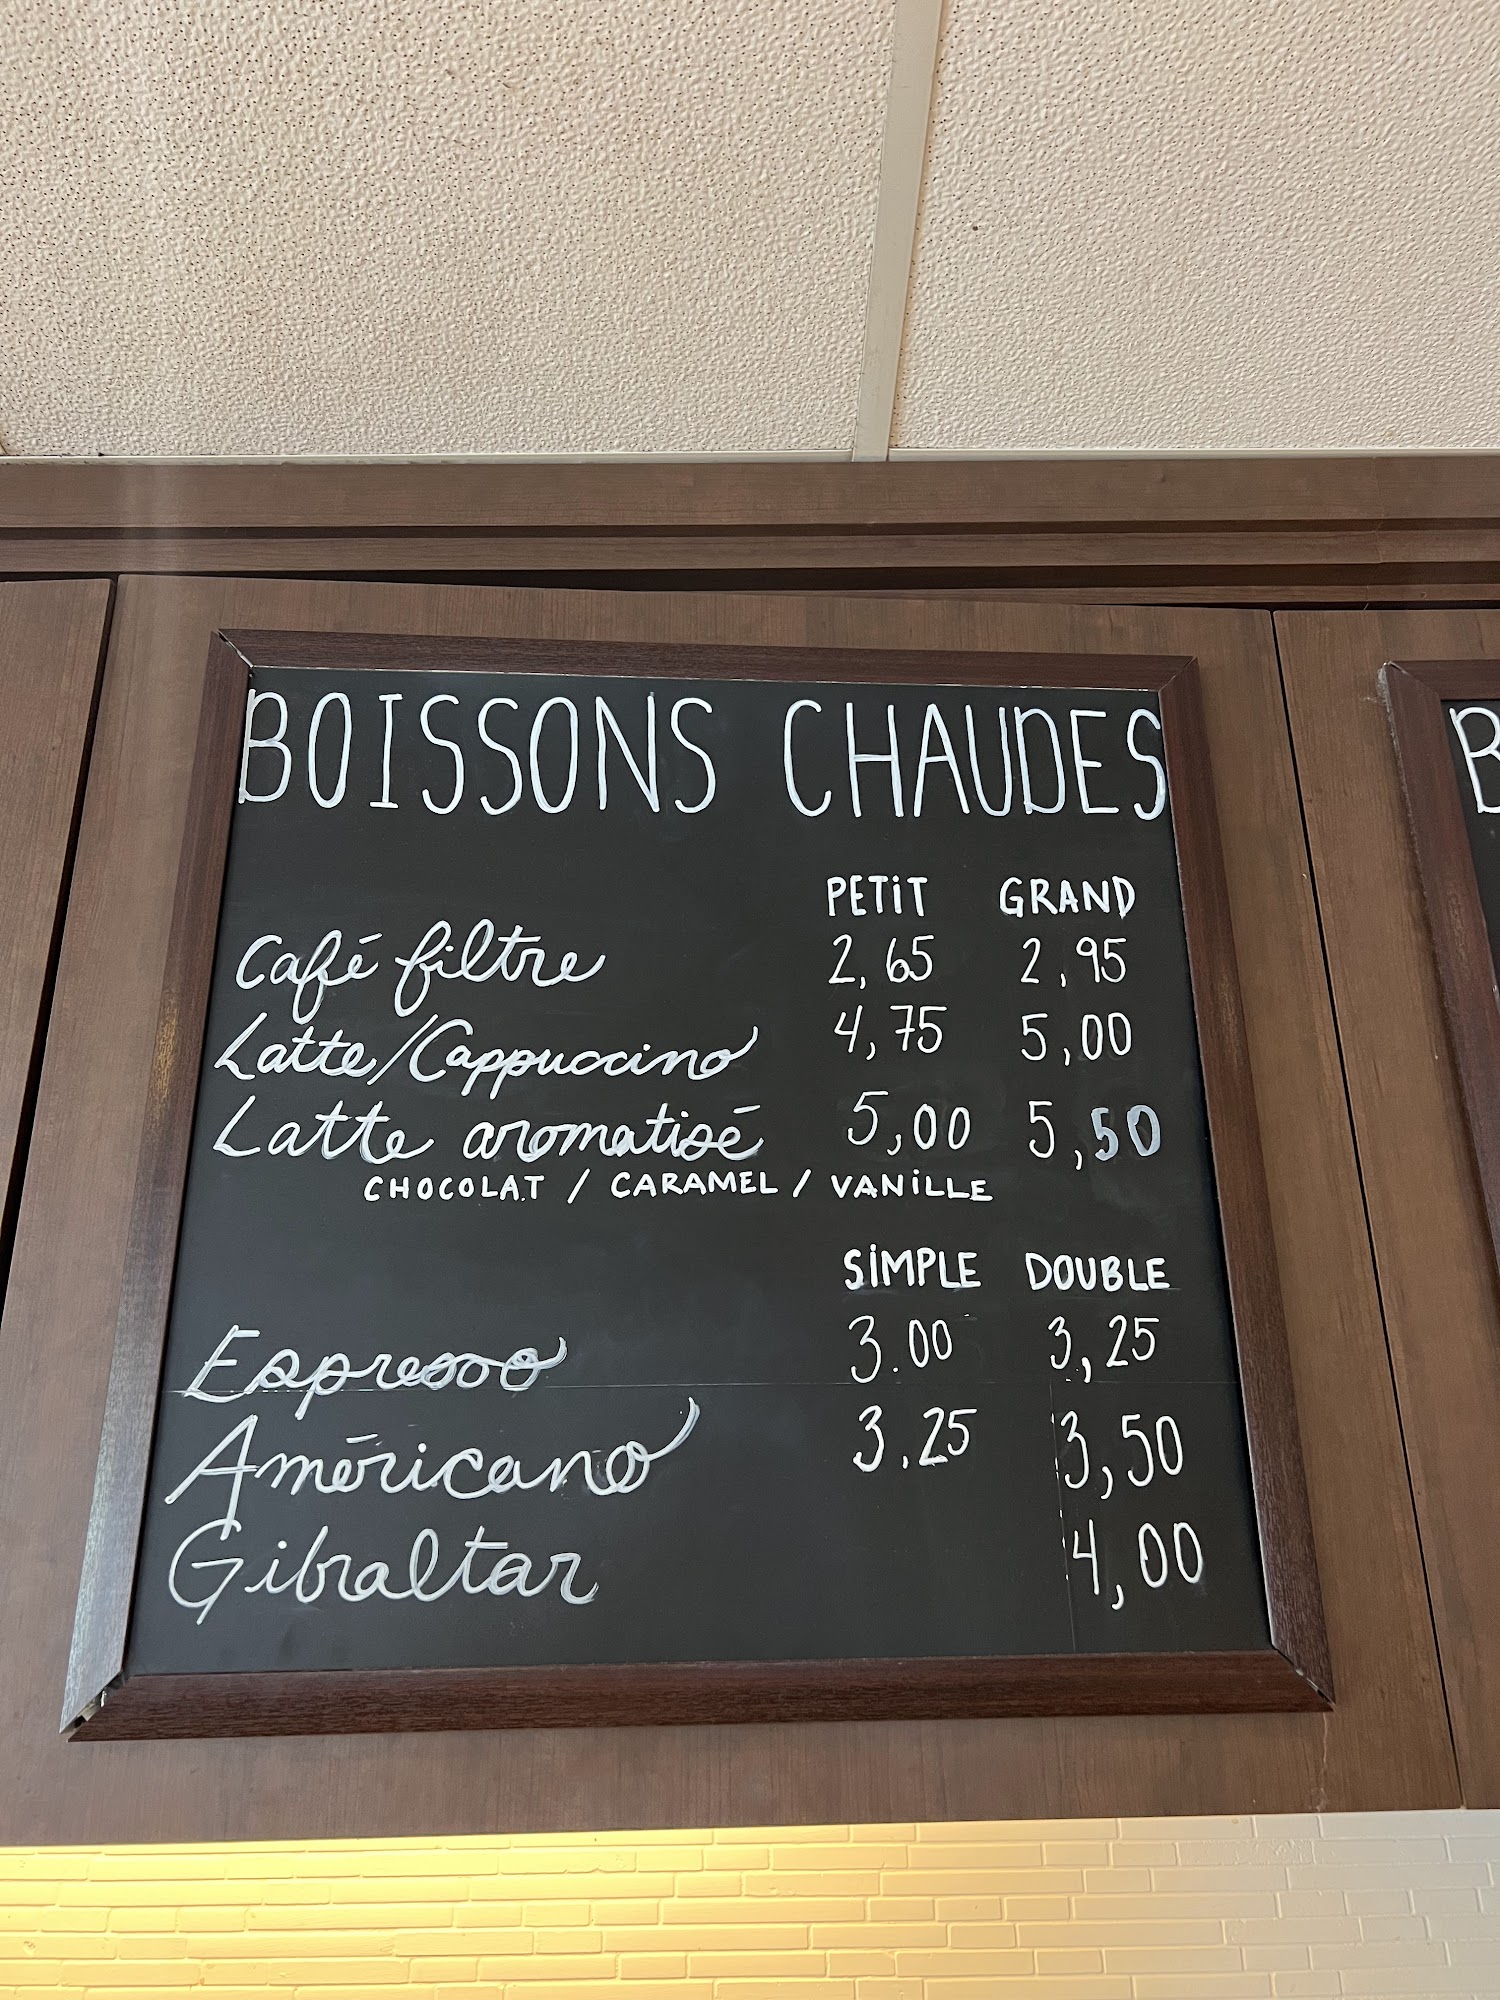 BOISSONS CHAUDES
PETIT GRAND
Café filtre 2,65 2,95
Latte/Cappuccino 4,75 5,00
Latte aromatisé 5,00 5,50
CHOCOLAT / CARAMEL / VANILLE
SIMPLE DOUBLE
Espresso 3.00 3,25
Américano 3.25 3,50
Gibraltar 4,00
B